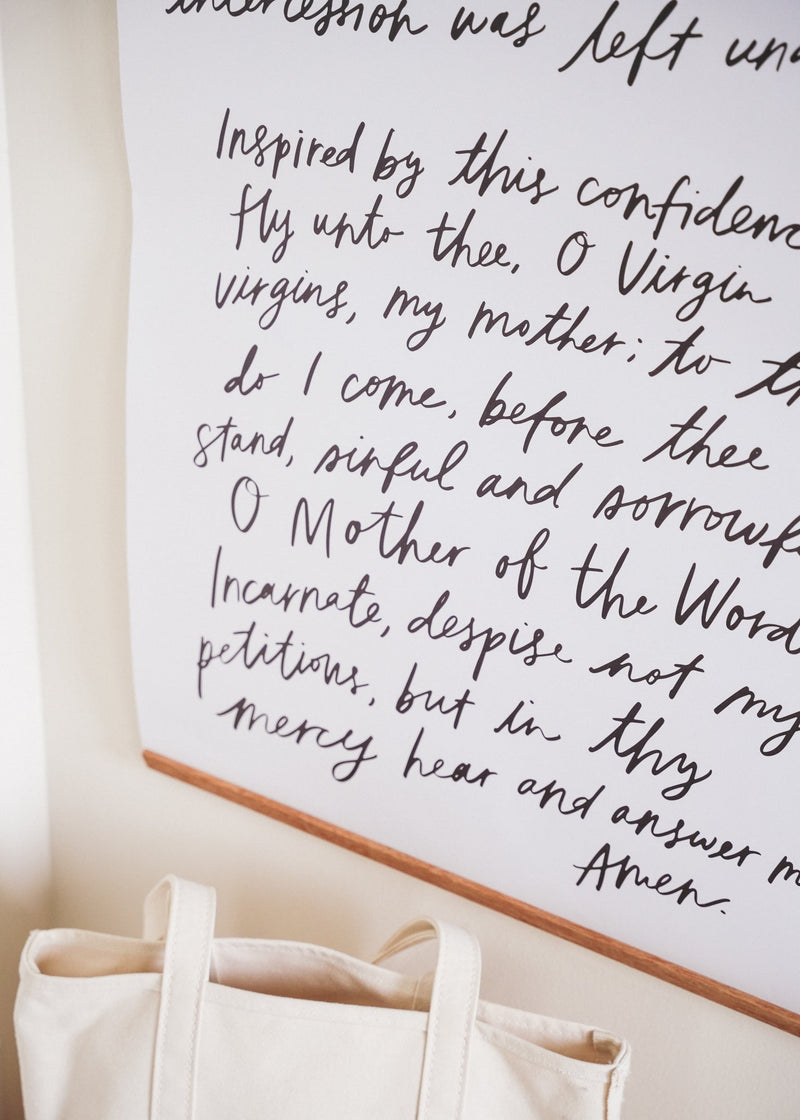 intercession was left una
Inspired by this confidenc
fly unto thee, O Virgin
virgins, my mother; to th
do I come, before thee
stand, sinful and sorrowf
O Mother of the Word
Incarnate, despise not my
petitions, but in thy
mercy hear and answer m
Amen.